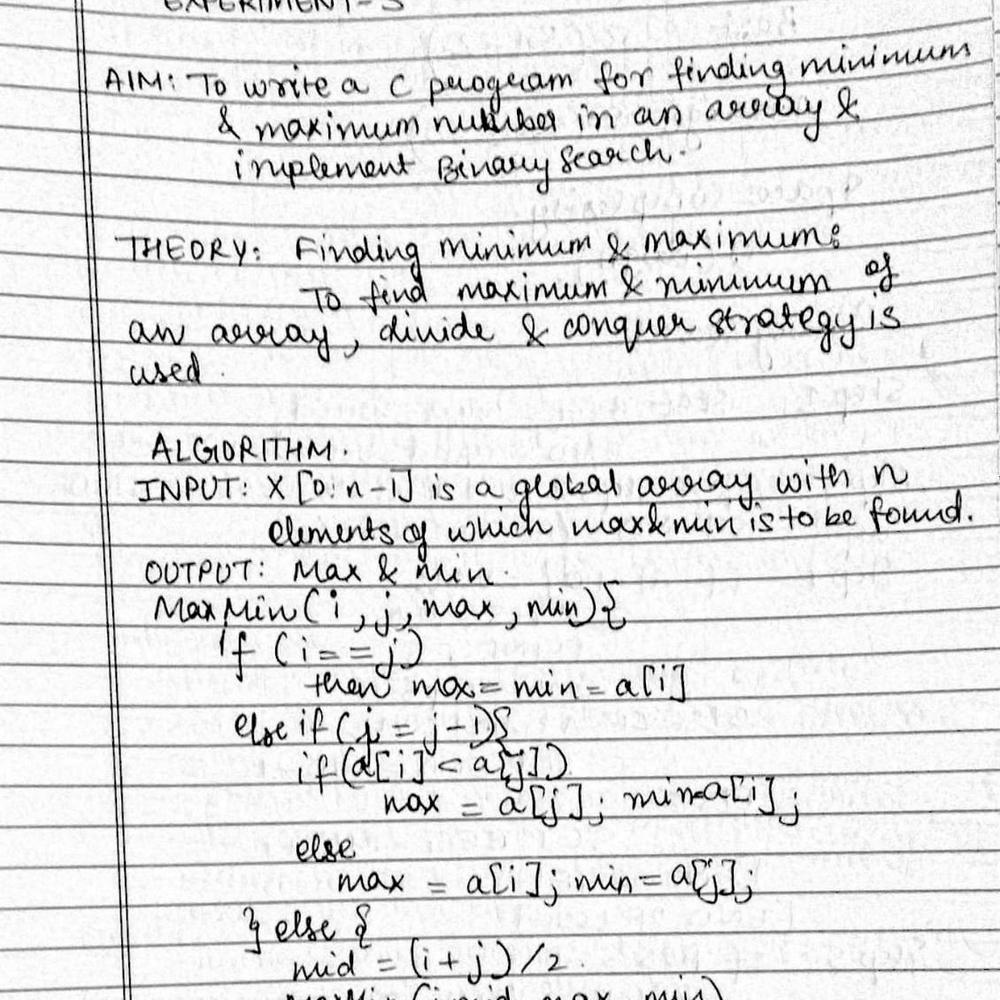 EXPERIMENT-3
AIM: To write a C program for finding minimum
& maximum number in an array &
implement Binary Search.
THEORY: Finding minimum & maximum:
To find maximum & minimum of
an array, divide & conquer strategy is
used.
ALGORITHM.
INPUT: X [0:n-1] is a global array with n
elements of which max & min is to be found.
OUTPUT: Max & Min.
MaxMin(i, j, max, min){
if (i==j)
then max = min = a[i]
else if (j = j-1){
if(a[i] < a[j])
max = a[j]; min=a[i];
else
max = a[i]; min = a[j];
} else {
mid = (i+j)/2.